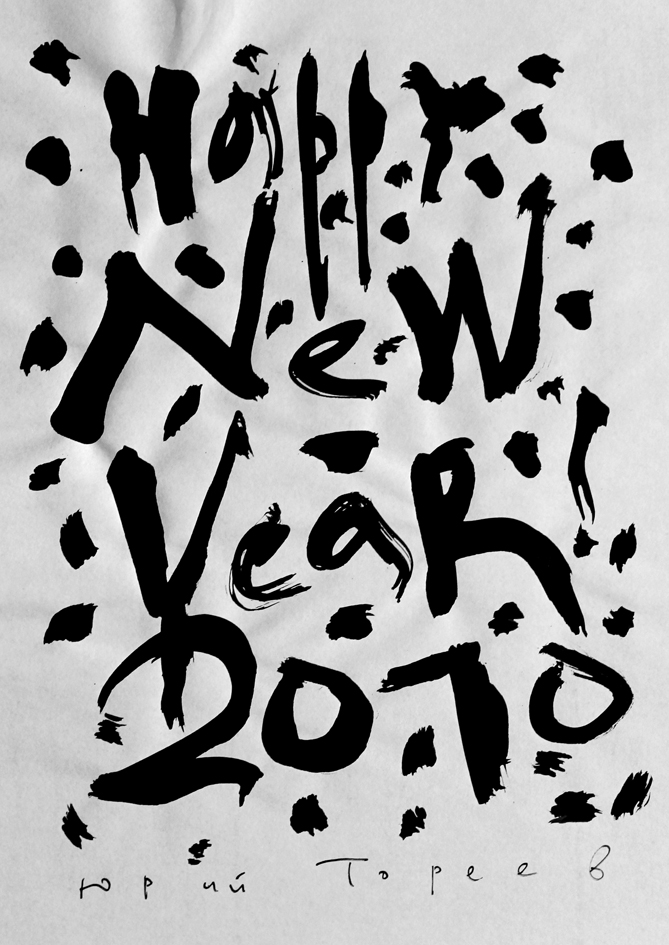 Happy
New
Year!
2010
Юрий Тореев